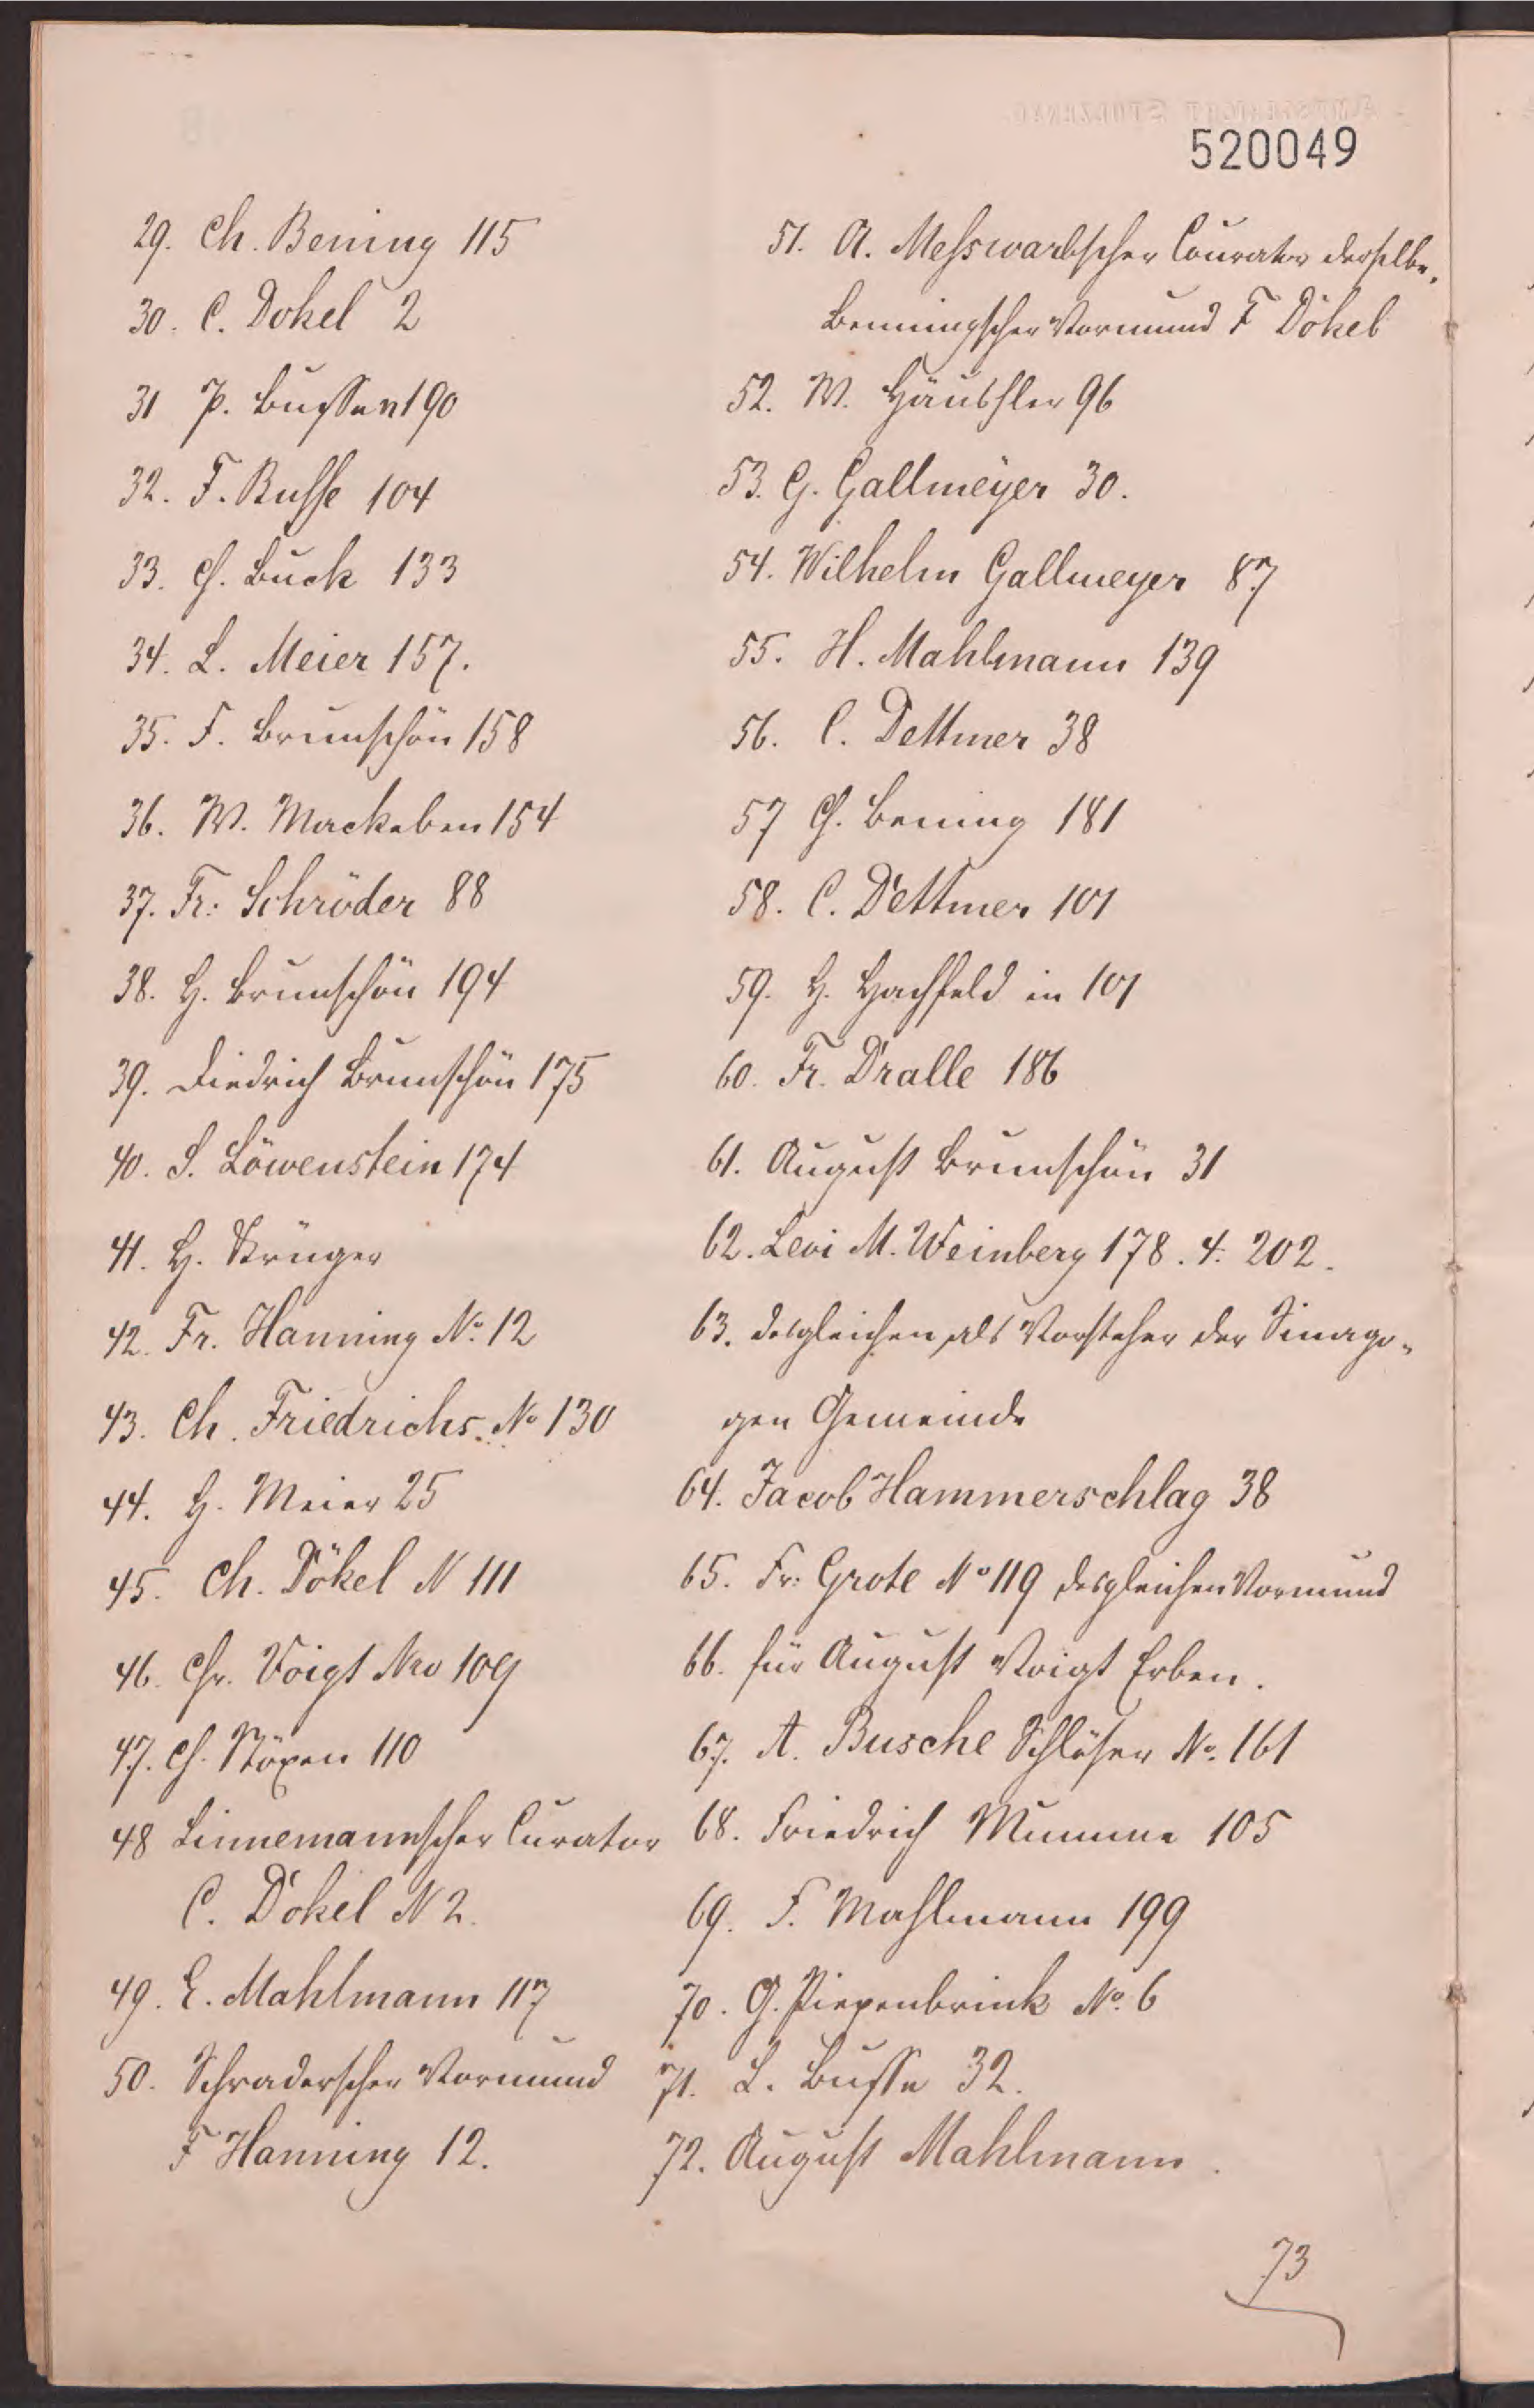 520049
29. Ch. Bening 115
30. C. Dökel 2
31 P. Bussen 190
32. F. Busse 104
33. Ch. Buck 133
34. L. Meier 157.
35. F. Brunschön 158
36. W. Mackeben 154
37. Fr: Schröder 88
38. H. Brunschön 194
39. Diedrich Brunschön 175
40. S. Löwenstein 174
41. H. Krüger
42. Fr. Hanning No. 12
43. Ch. Friedrichs. No 130
44. H. Meier 25
45. Ch. Dökel N 111
46. Chr. Voigt Nro 109
47. Ch. Növen 110
48 Linnemannscher Curator
C. Dökel N 2.
49. E. Mahlmann 117
50. Schraderscher Vormund
F Hanning 12.
51. A. Messwarbscher Courator derselbe,
Benningscher Vormund F Dökel
52. W. Häusler 96
53. G. Gallmeyer 30.
54. Wilhelm Gallmeyer 87
55. H. Mahlmann 139
56. C. Dettmer 38
57 Ch. Bening 181
58. C. Dettmer 101
59. H. Hachfeld in 101
60. Fr. Dralle 186
61. August Brunschön 31
62. Levi M. Weinberg 178. 4. 202.
63. desgleichen als Vorsteher der Sinago-
gen Gemeinde
64. Jacob Hammerschlag 38
65. Fr: Grote No 119 desgleichen Vormund
66. für August Voigt Erben.
67. A. Busche Schlösser No. 161
68. Friedrich Mumme 105
69. F. Mahlmann 199
70. G. Piepenbrink No. 6
71. L. Busse 32.
72. August Mahlmann.
73